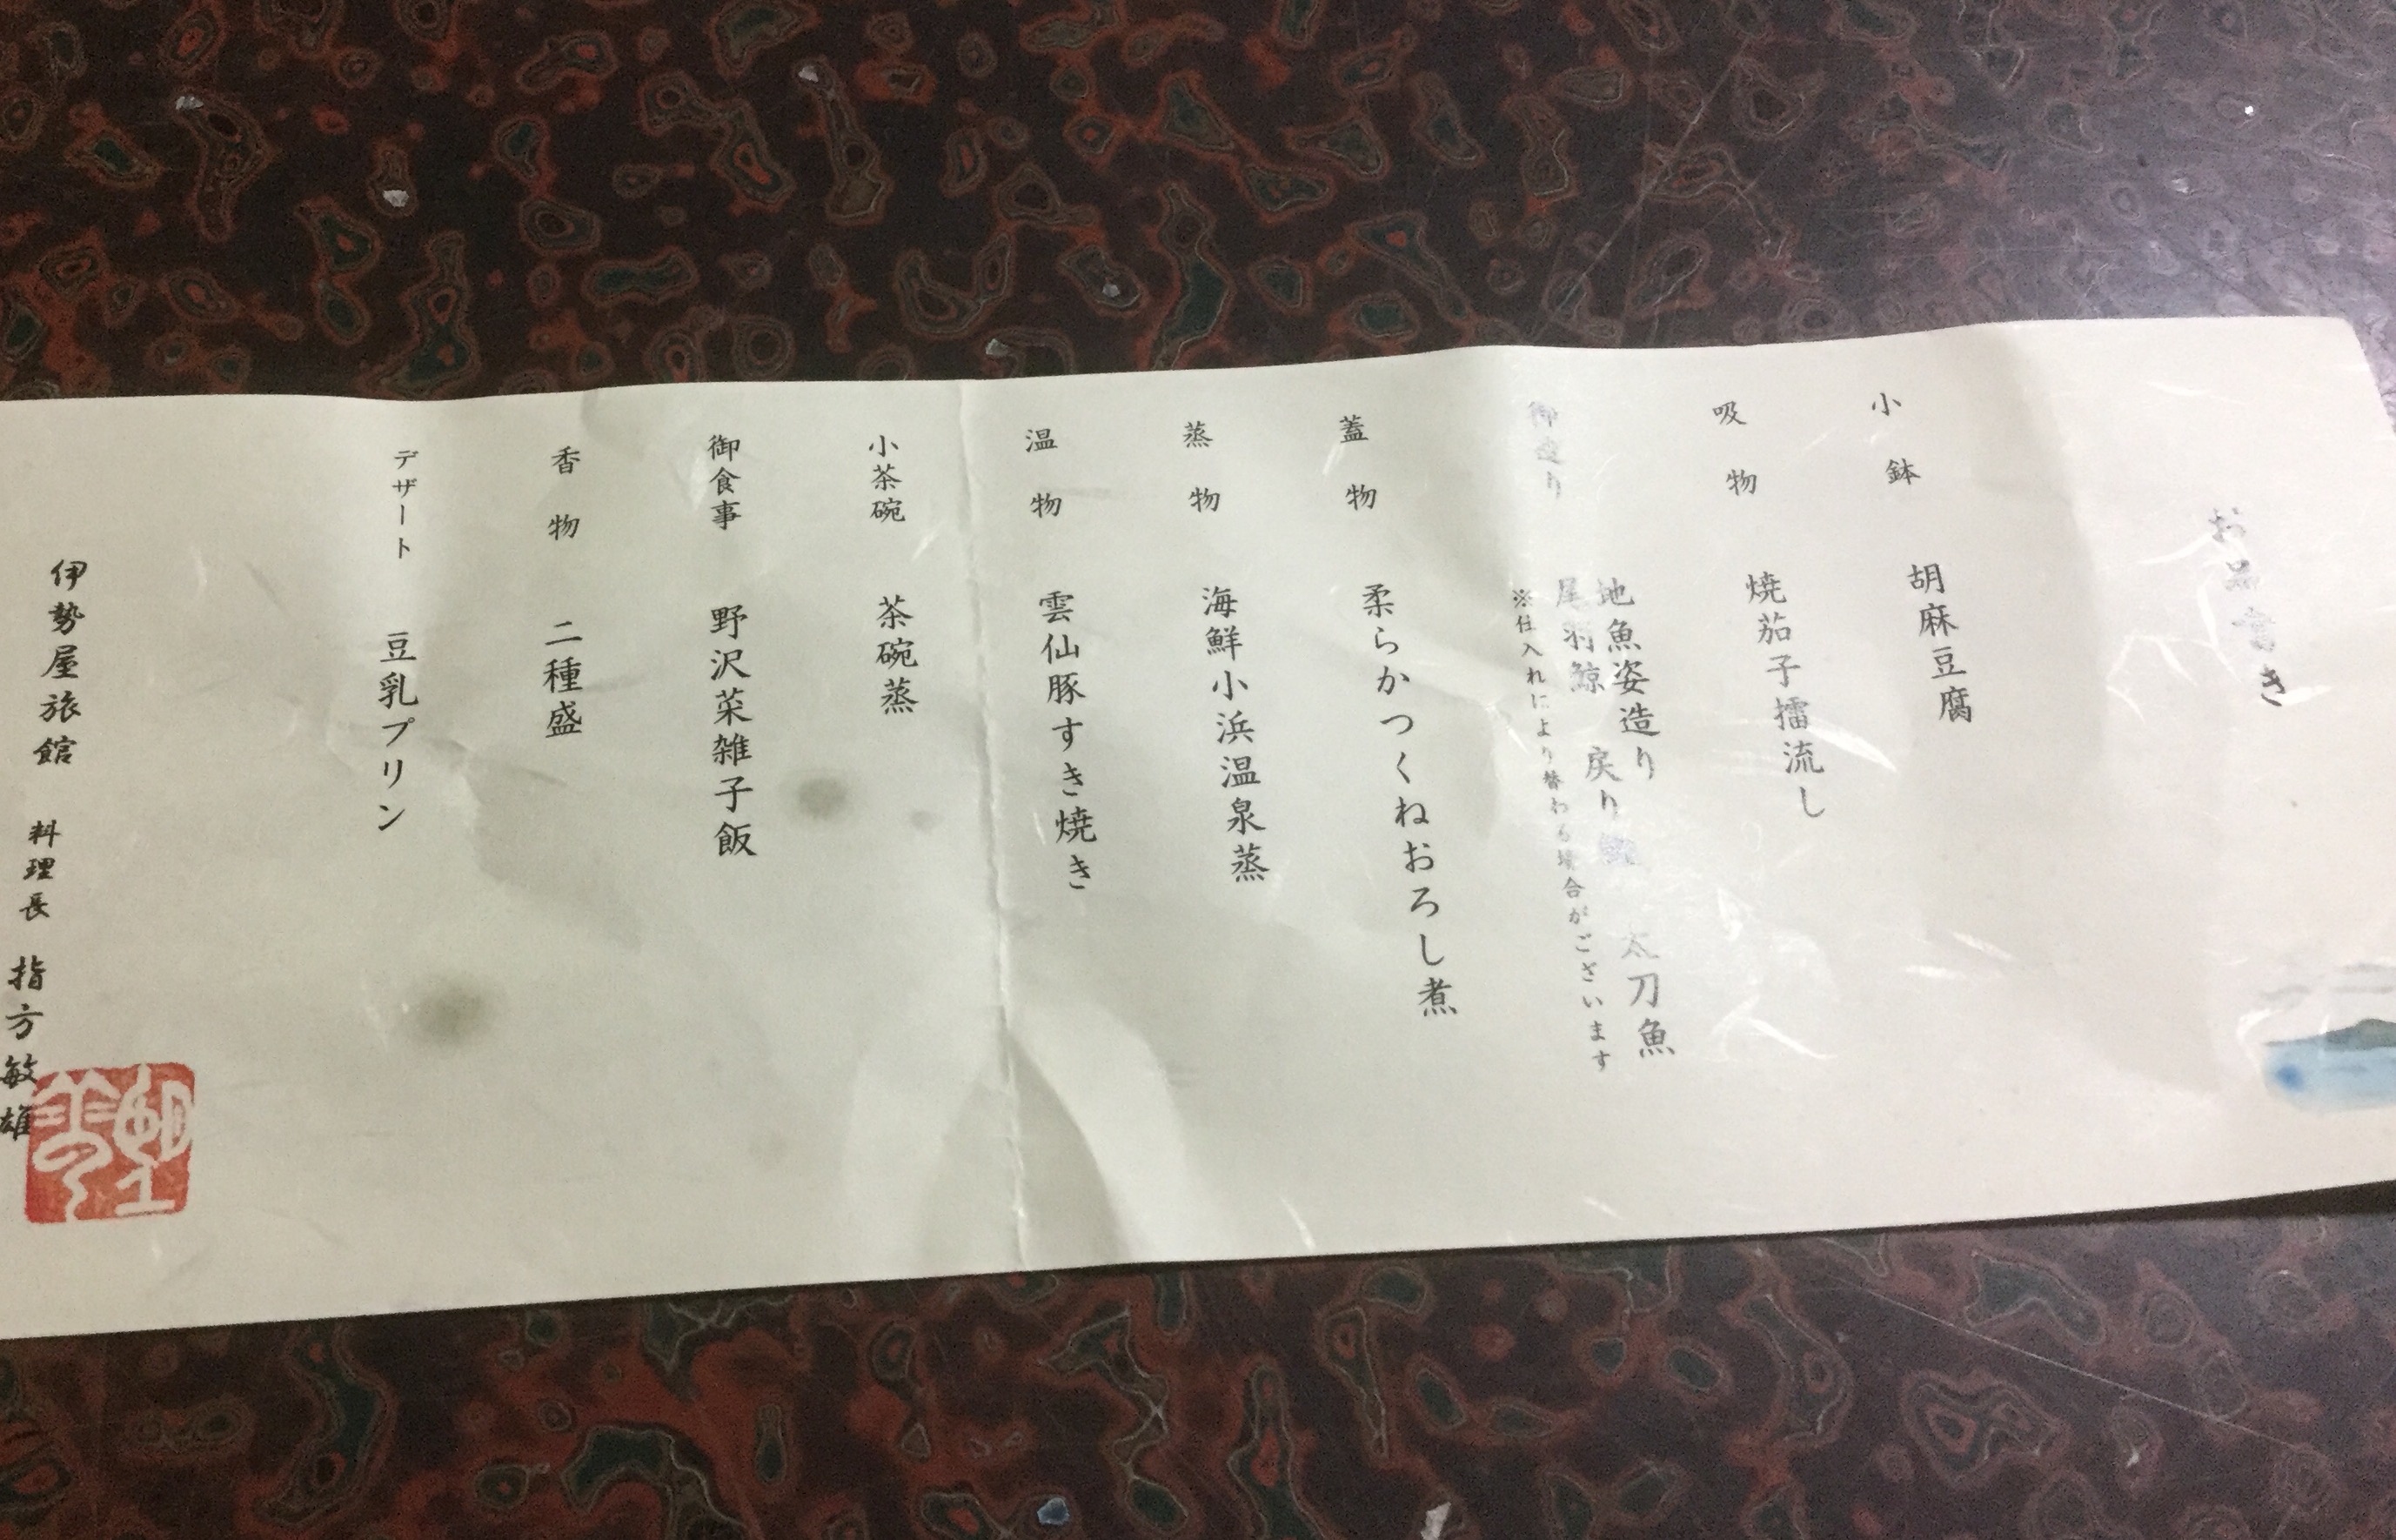 お品書き
小鉢 胡麻豆腐
吸物 焼茄子擂流し
御造り 地魚姿造り
尾羽鯨 戻り鰹 太刀魚
※仕入れにより替わる場合がございます
蓋物 柔らかつくねおろし煮
蒸物 海鮮小浜温泉蒸
温物 雲仙豚すき焼き
小茶碗 茶碗蒸
御食事 野沢菜雑子飯
香物 二種盛
デザート 豆乳プリン
伊勢屋旅館 料理長 指方敏雄